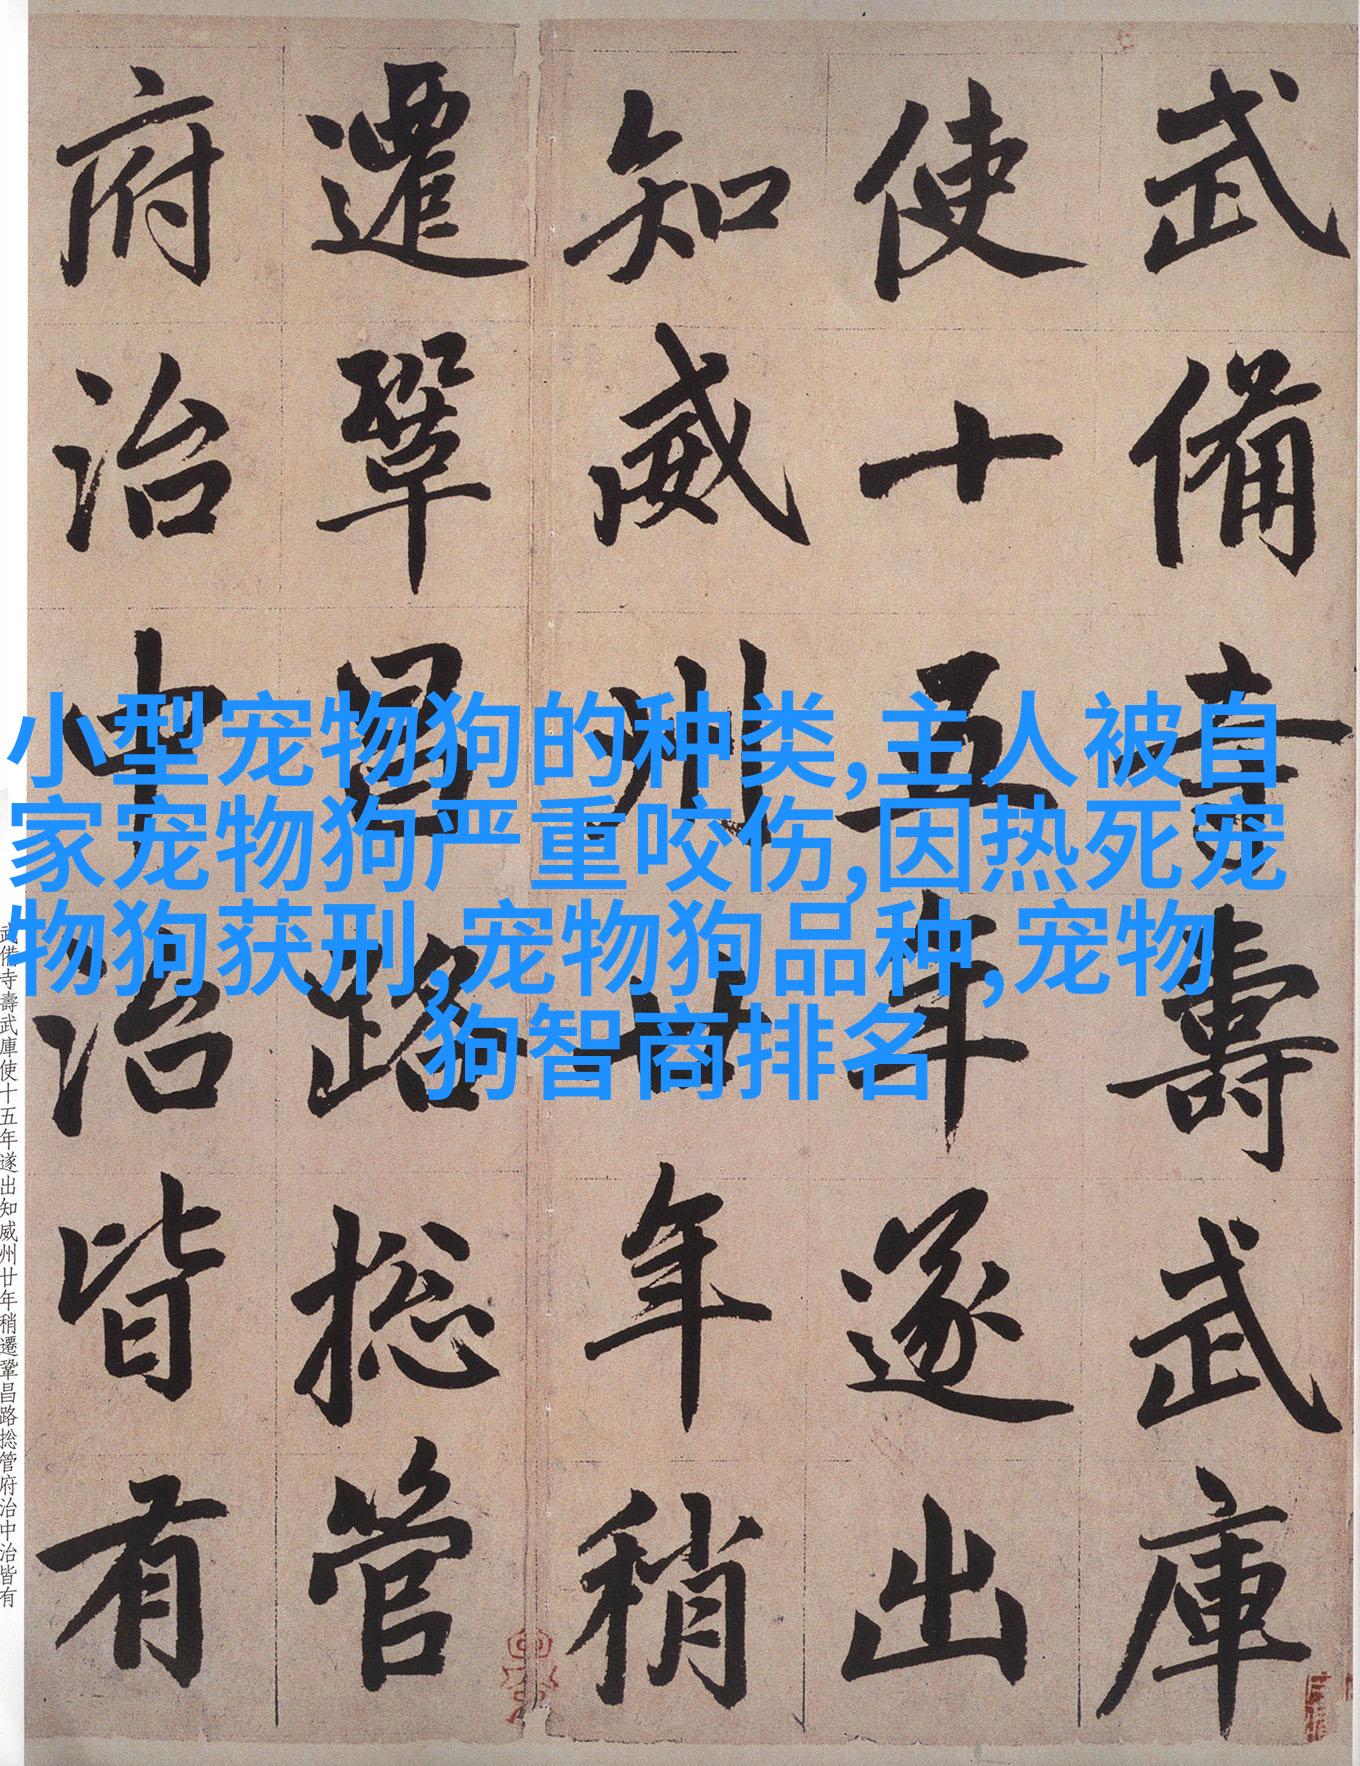 武備寺壽武庫
使十五年遂出
知威州廿年稍
遷鞏昌路捴管
府治中治皆有
小型宠物狗的种类,主人被自
家宠物狗严重咬伤,因热死宠
物狗获刑,宠物狗品种,宠物
狗智商排名
武備寺壽武庫使十五年遂出知威州廿年稍遷鞏昌路捴管府治中治皆有